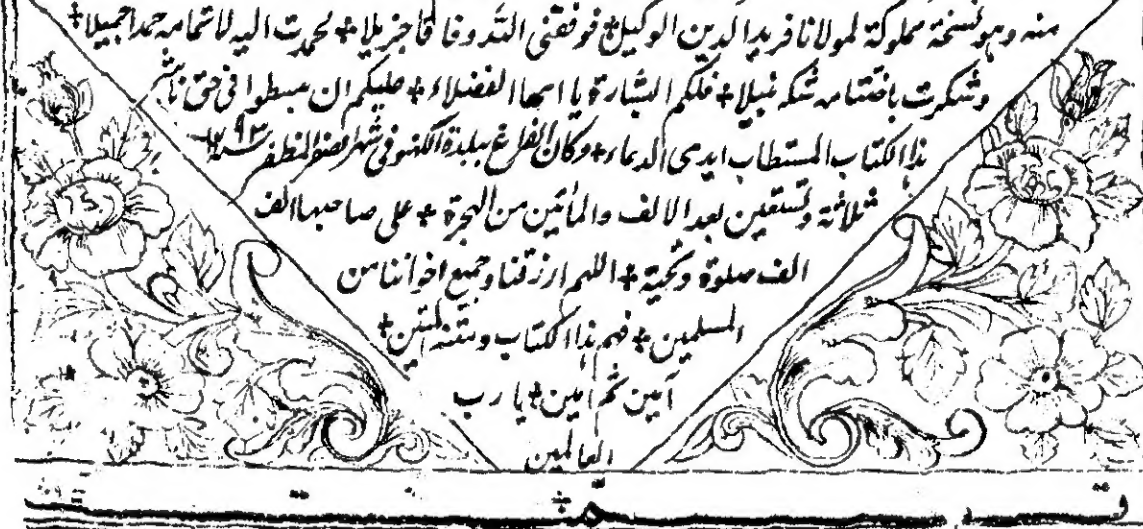 منه وهو نسخة مملوكة لمولانا فريد الدين الوكيل + فوفقنى الله وفاقا جزيلا + لحمدت اليه لاتمامه حمدا جميلا +
وشكرت باختتامه شكر نبيلا + فلكم البشارة يا ايها الفضلاء + عليكم ان تبسطوا فى حق ناشر
هذا الكتاب المستطاب ايدى الدعاء + وكان الفراغ ببلدة لكهنو فى شهر صفر المظفر سنة ۱۲۹۳
ثلاثة وتسعين بعد الالف والمأتين من الهجرة + على صاحبها الف
الف صلوة وتحية + اللهم ارزقنا وجميع اخواننا من
المسلمين + فهم هذا الكتاب ومتنه المتين +
آمين ثم آمين + يا رب
العالمين
قد تمت